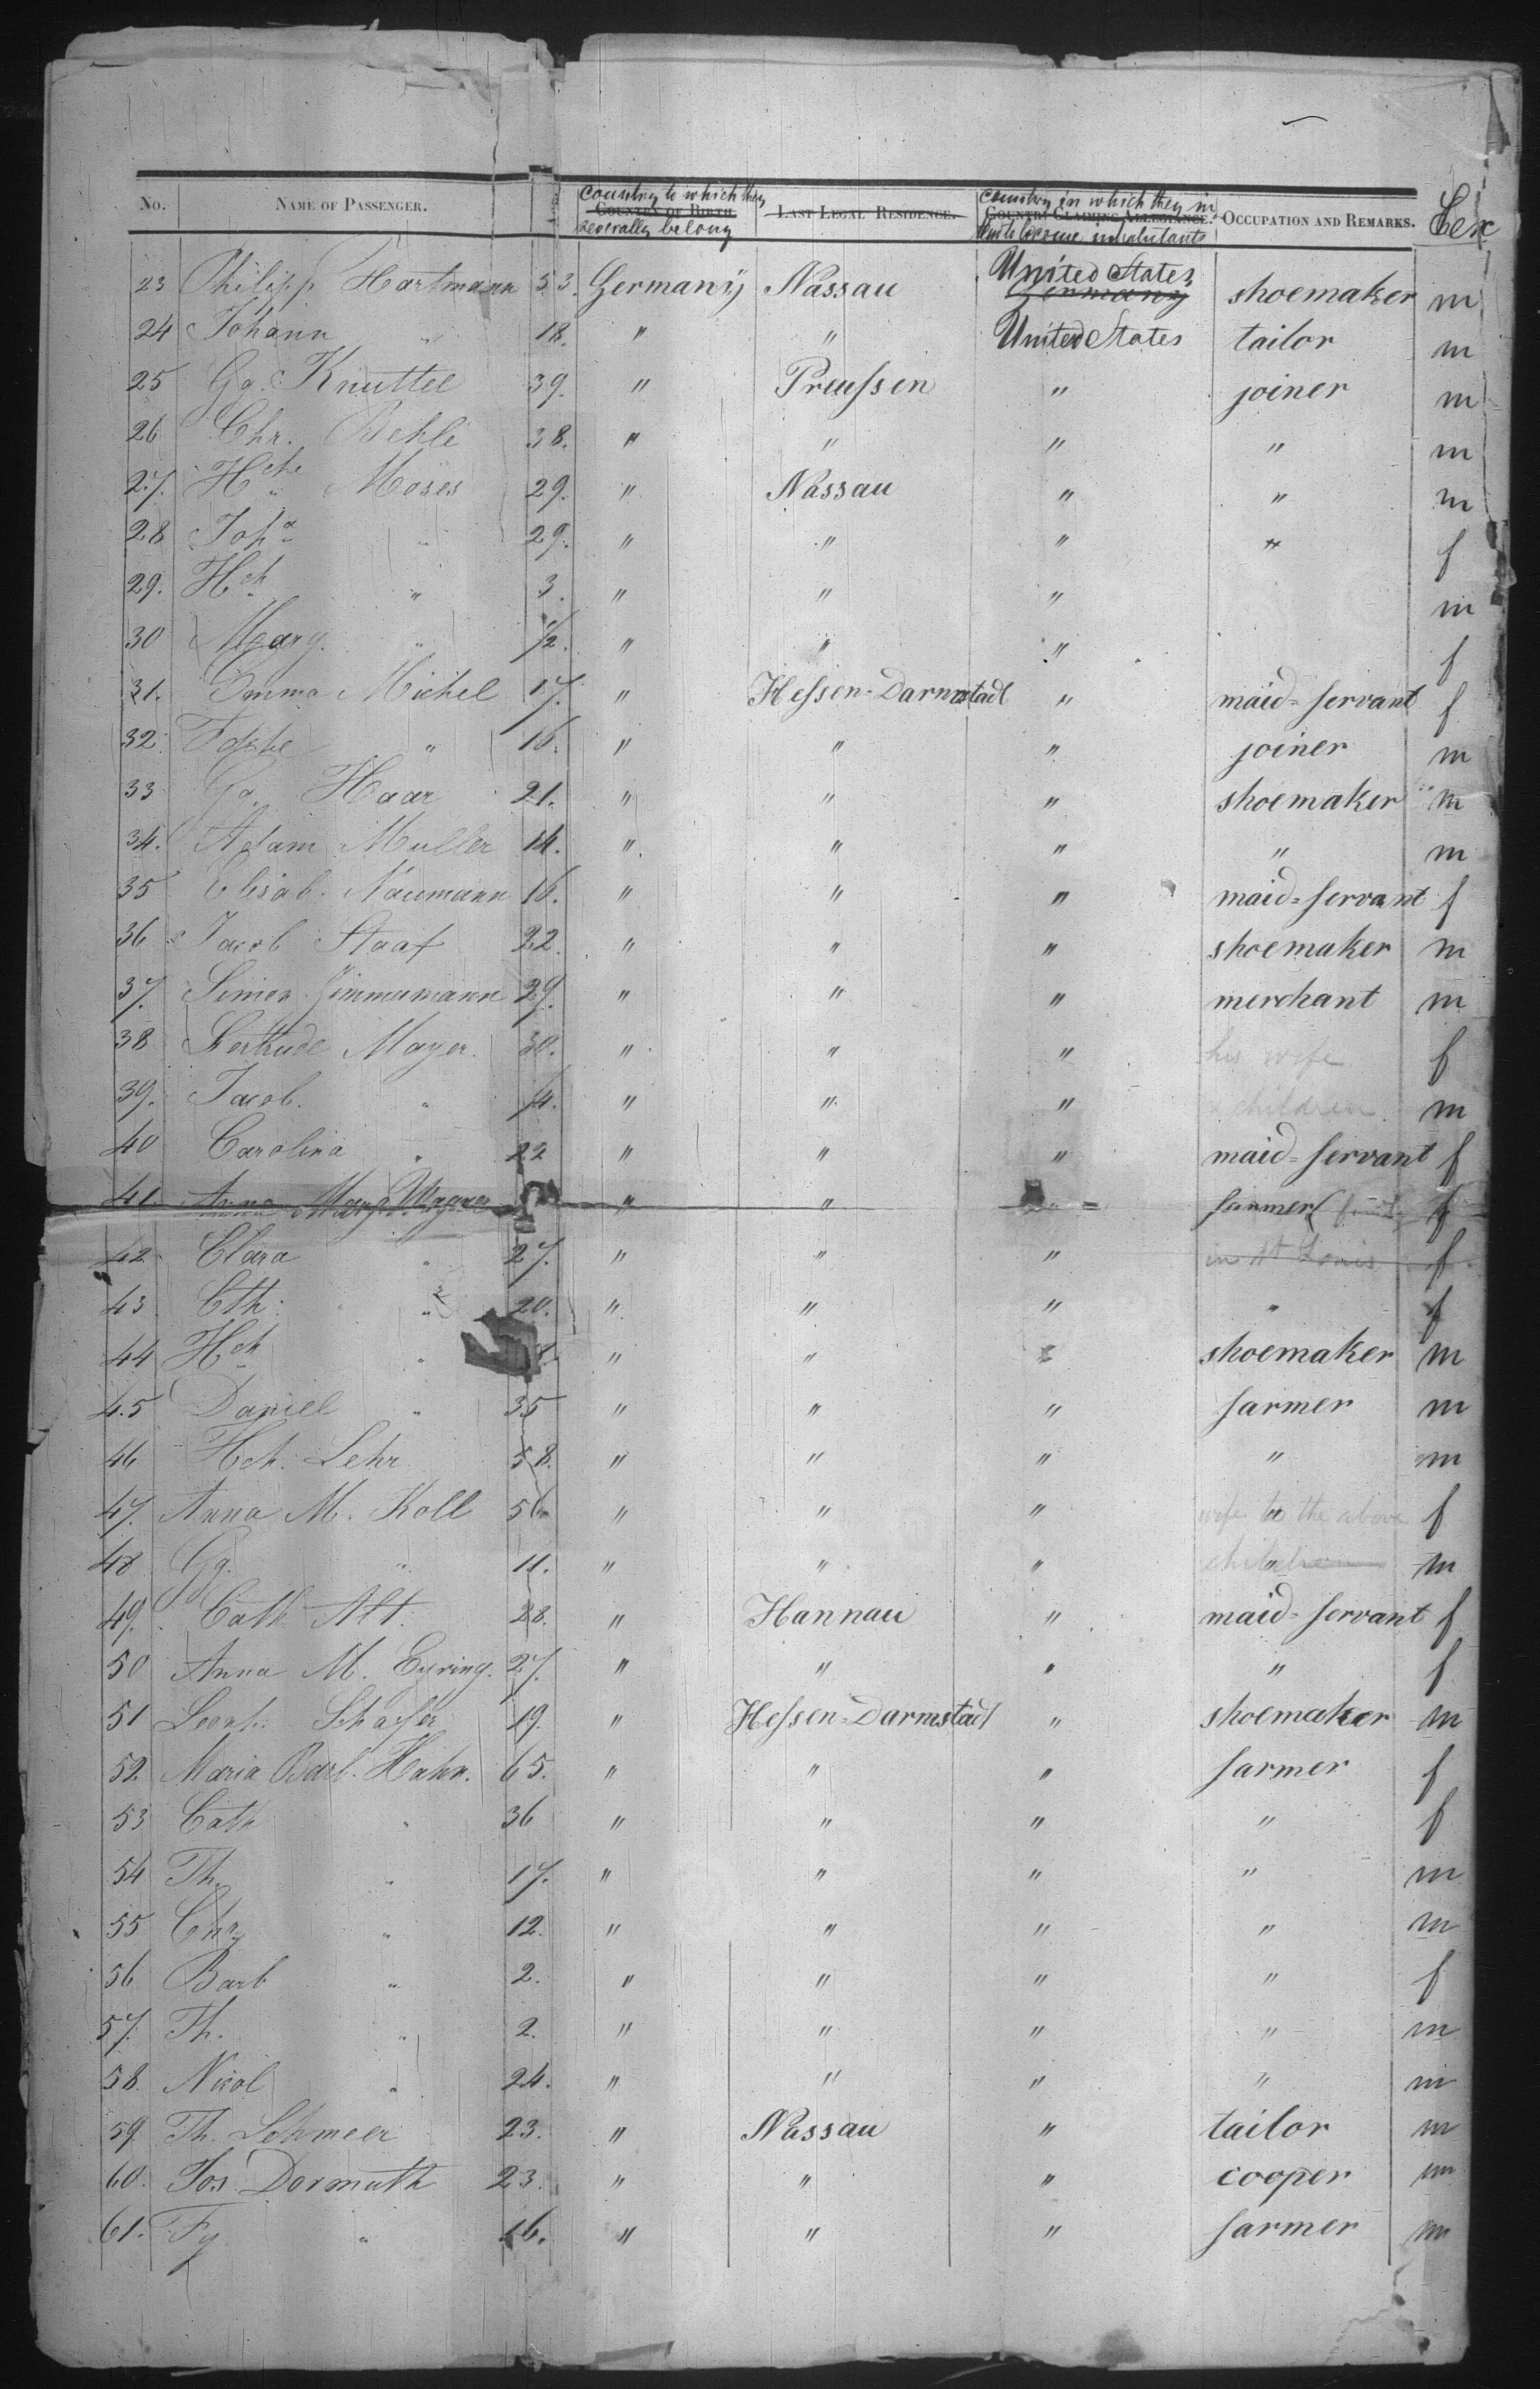 No. NAME OF PASSENGER. Country to which they severally belong COUNTRY OF BIRTH LAST LEGAL RESIDENCE. Country in which they in COUNTRY CLAIMING ALLEGIANCE. inhabitants OCCUPATION AND REMARKS. Sex
23 Philipp Hartmann 53. Germany Nassau United States Germany shoemaker m
24 Johann " 18. " " United States tailor m
25 Gg. Knuttel 39. " Preussen " joiner m
26 Chr. 38. " " " " m
27. Hch. Moses 29. " Nassau " " m
28 Joha " 29. " " " " f
29. Hch " 3. " " " m
30 Marg. " 1/2. " " " f
31. Emma Michel 17. " Hessen-Darmstadt " maid-servant f
32. " 16. " " " joiner m
33 Gg. Haar 21. " " " shoemaker m
34. Adam Muller 14. " " " " m
35 Elisab. Naumann 16. " " " maid-servant f
36 Jacob Staaf 22. " " " shoemaker m
37. Simon Zimmermann 29. " " " merchant m
38 Gertrude Mayer 30. " " " his wife f
39. Jacob. " " " " children m
40 Carolina " 22 " " " maid-servant f
41. Anna Marg. Wagner " " " farmer f
42 Clara " 27. " " " in St Louis f
43 Cth: " 20. " " " " f
44 Hch " " " " shoemaker m
45 Daniel " 35 " " " farmer m
46 Hch. Lehr 58. " " " " m
47. Anna M. Koll 56 " " " wife to the above f
48 Gg. " 11. " " " children m
49. Cath Alt. 28. " Hannau " maid-servant f
50 Anna M. Eyring. 27. " " " " f
51 Leonh. Schafer 19. " Hessen-Darmstadt " shoemaker m
52. Maria Barb. Hahn. 65. " " " farmer f
53 Cath " 36 " " " " f
54 Th. " 17. " " " " m
55 Chr. " 12. " " " " m
56 Barb " 2. " " " " f
57. Th. " 2. " " " " m
58. Nicol " 24. " " " " m
59. Th. Schmeer 23. " Nassau " tailor m
60. Jos. Dormuth 23. " " " cooper m
61. " 16. " " " farmer m